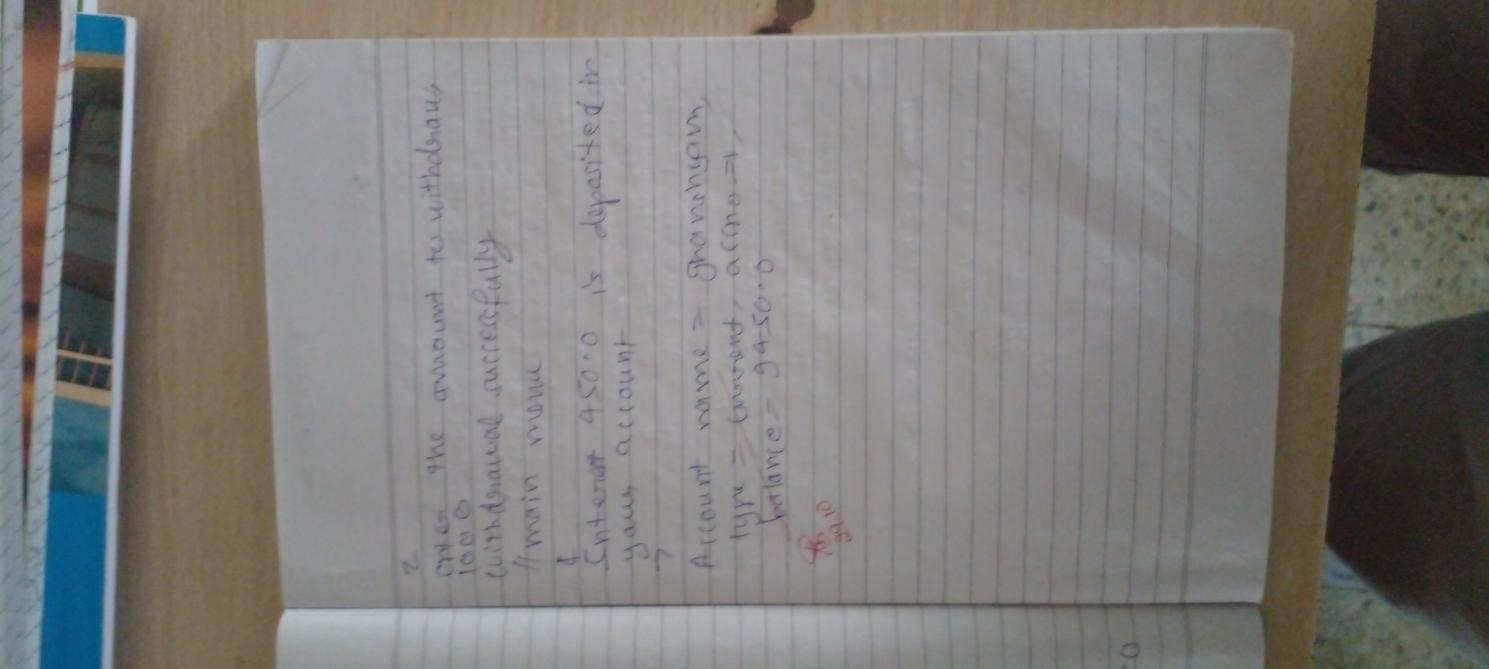 2
enter the amount to withdraw
1000
withdrawal successfully
//main menu
Interest 450.0 is deposited in
your account
7
Account name = ghanshyam,
type = current, accno=1,
balance = 9450.0